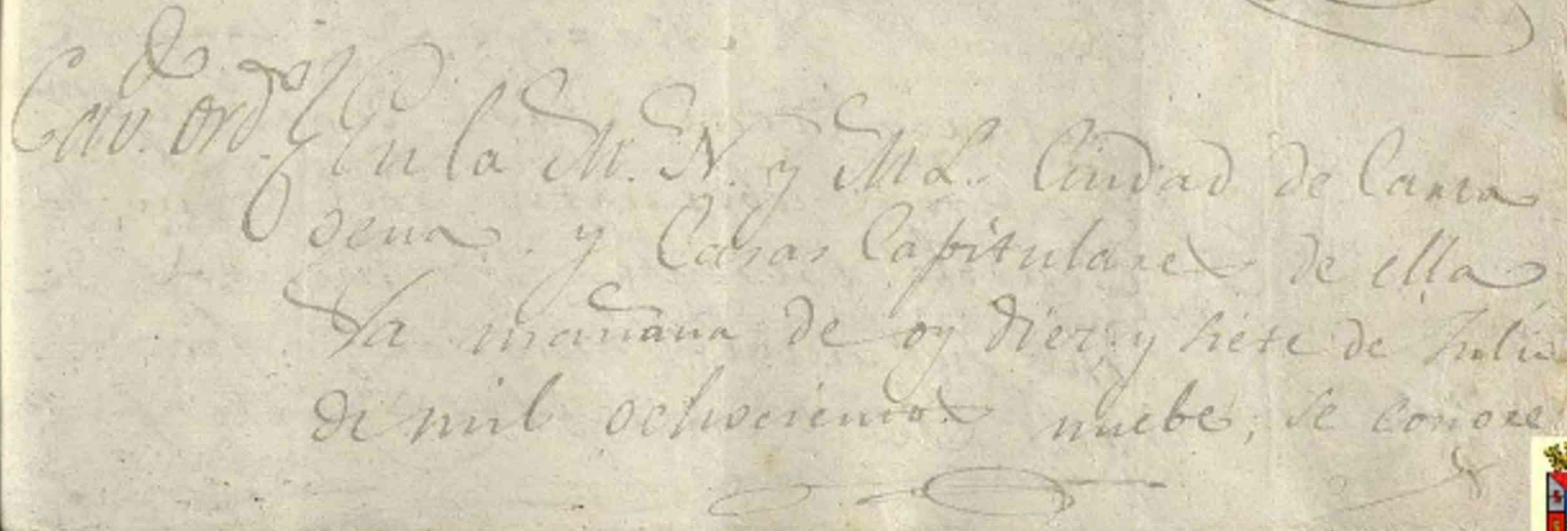 Cav.do ord.ro En la M. N. y M. L. Ciudad de Carta
gena y Casas Capitulares de ella
la mañana de oy diez y siete de Julio
de mil ochocientos nuebe, se congre